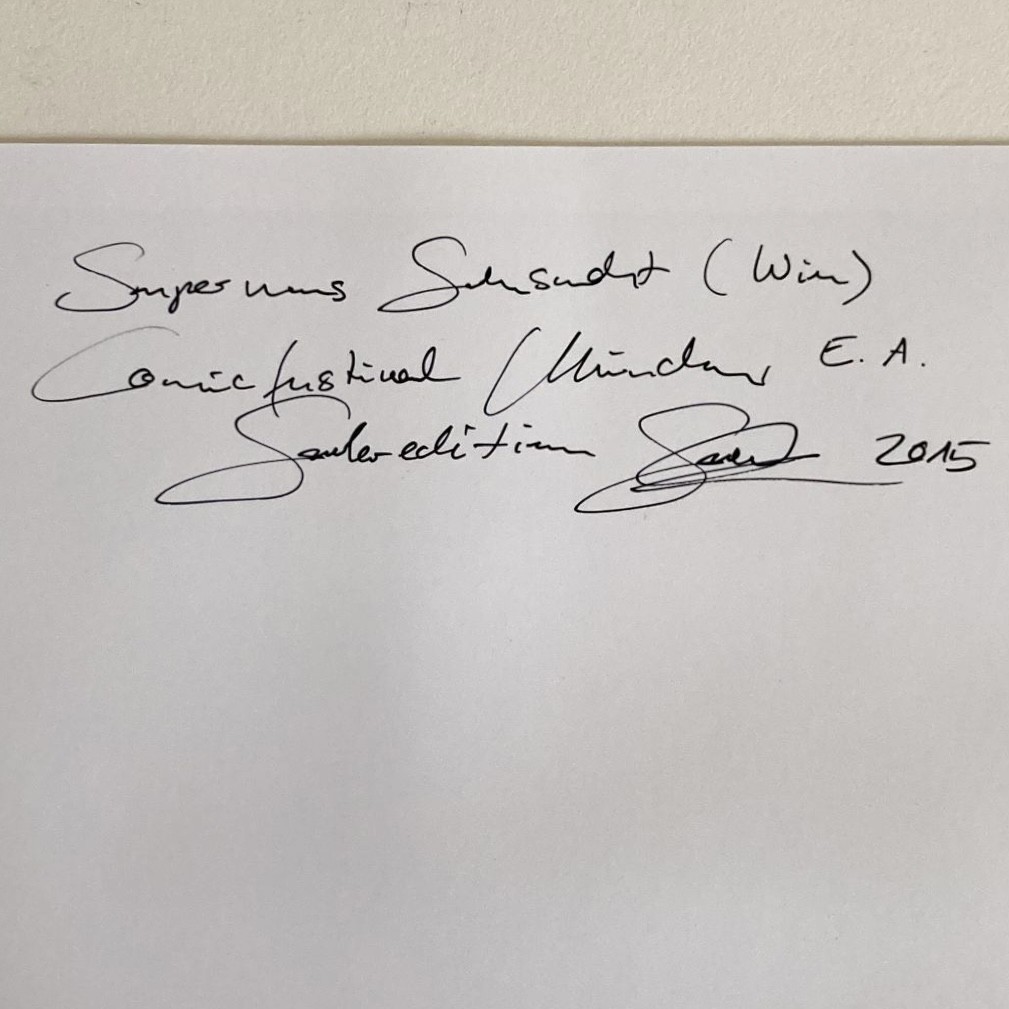 Supermans Sehnsucht (Wien)
Comicfestival München E. A.
Sonderedition 2015